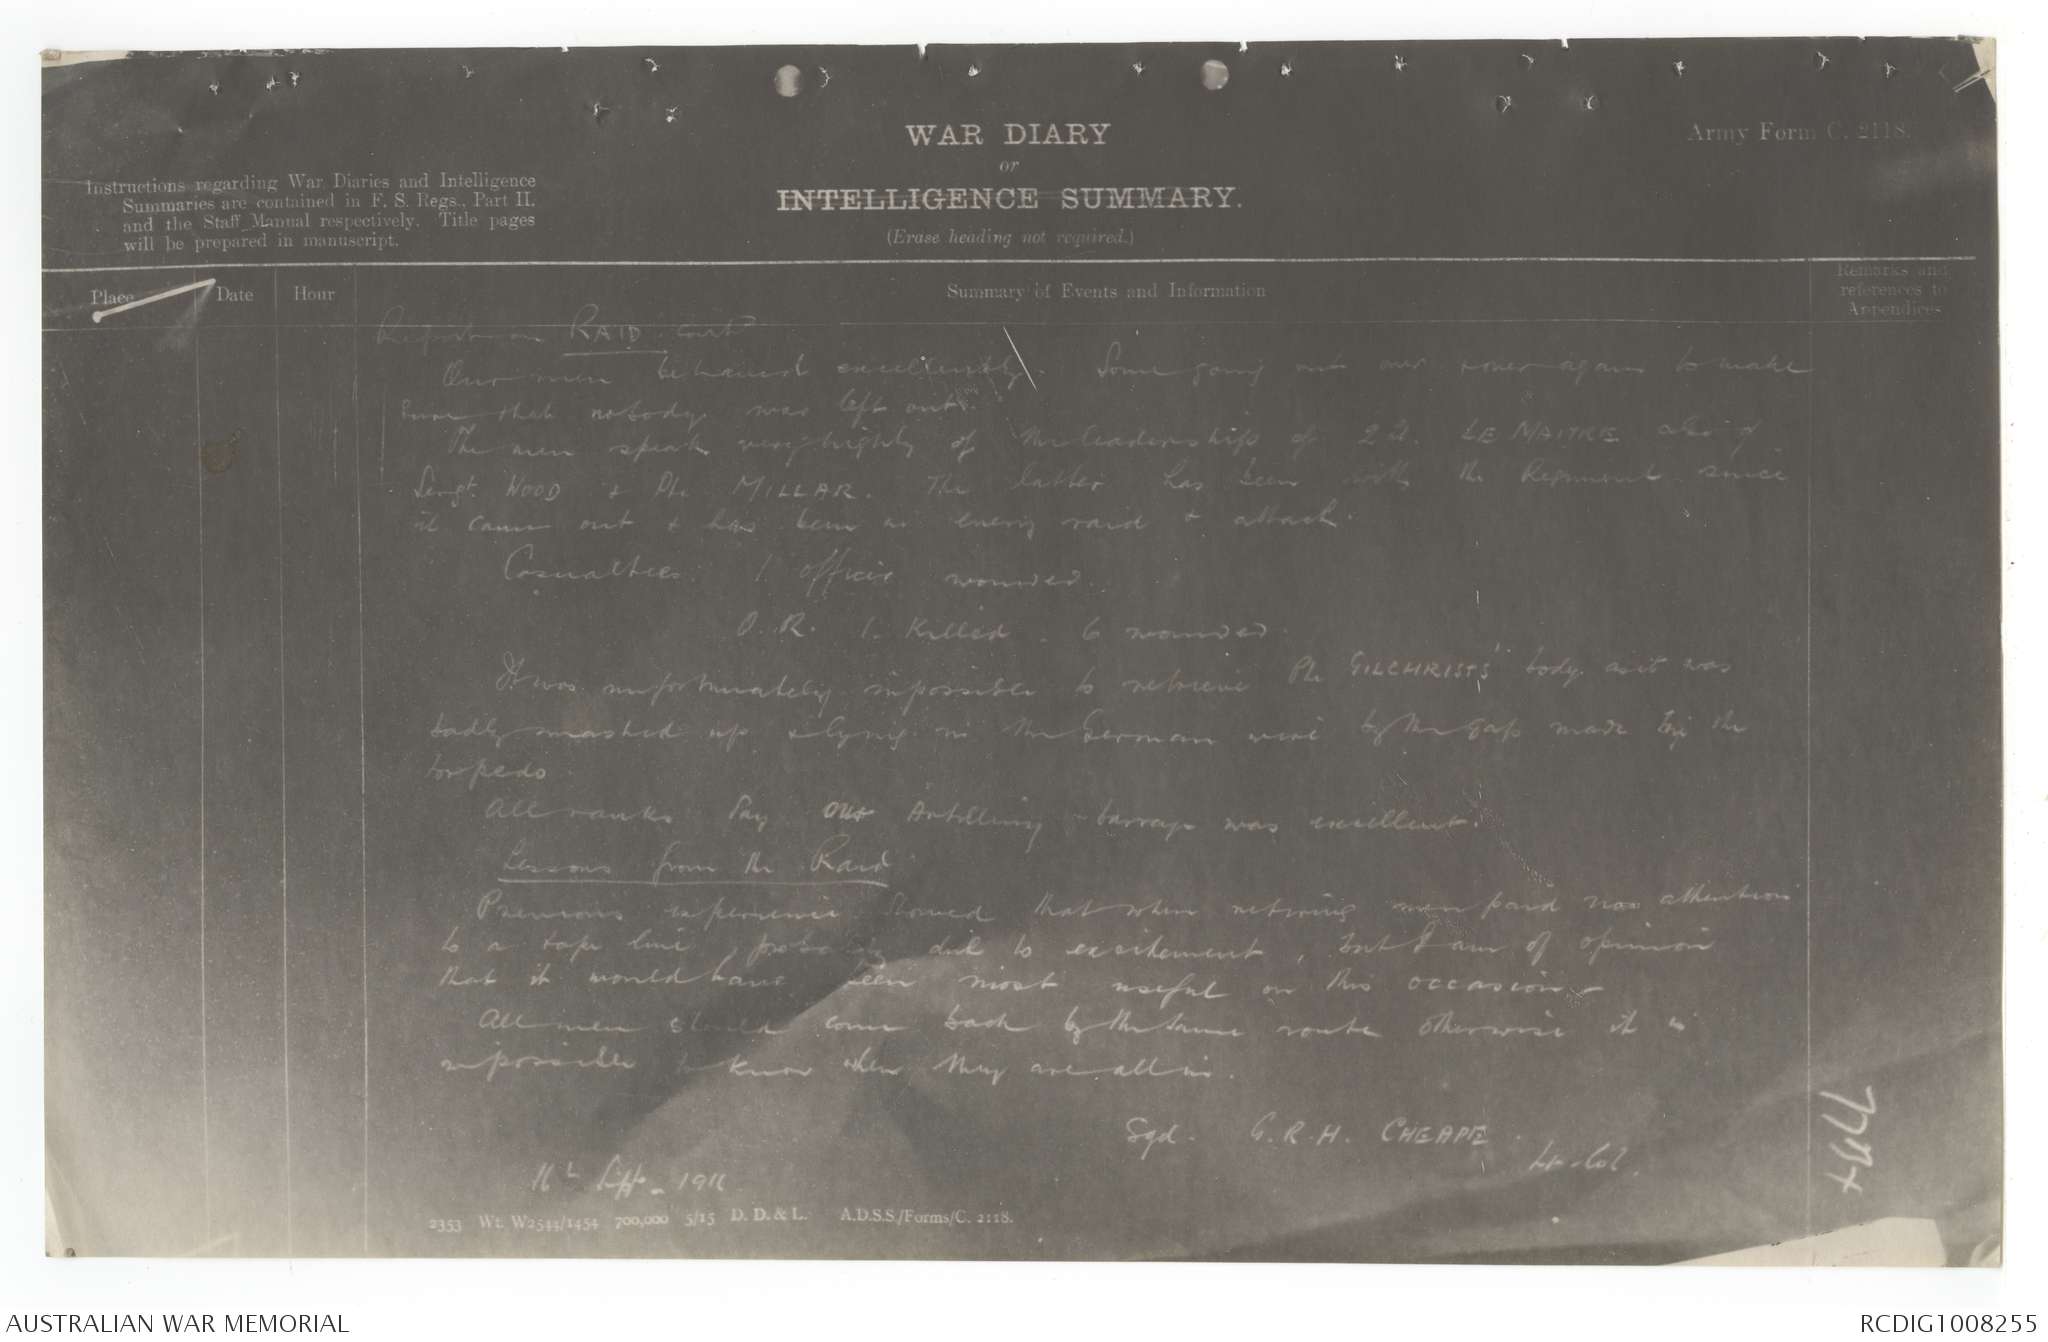 WAR DIARY
or
INTELLIGENCE SUMMARY.
(Erase heading not required.)
Army Form C. 2118.
Instructions regarding War Diaries and Intelligence
Summaries are contained in F. S. Regs., Part II.
and the Staff Manual respectively. Title pages
will be prepared in manuscript.
Place
Date
Hour
Summary of Events and Information
Remarks and
references to
Appendices
Report on RAID cont
Our men behaved excellently. Some going out over & over again to make
sure that nobody was left out.
The men speak very highly of the leadership of 2 Lt. LE MAITRE also of
Sergt. WOOD & Pte MILLAR. The latter has been with the Regiment since
it came out & has been in every raid & attack.
Casualties. 1 officer wounded.
O.R. 1 Killed. 6 wounded.
It was unfortunately impossible to retrieve Pte GILCHRISTS' body as it was
badly smashed up & lying in the German wire by the gap made by the
torpedo.
All ranks say our Artillery barrage was excellent.
Lessons from the Raid
Previous experience showed that when retiring men paid no attention
to a tape line, probably due to excitement, but I am of opinion
that it would have been most useful on this occasion.
All men should come back by the same route otherwise it is
impossible to know when they are all in.
Sgd. G.R.H. CHEAPE.
Lt-Col.
16th Sept. 1916
2353 Wt. W2544/1454 700,000 5/15 D. D. & L. A.D.S.S./Forms/C. 2118.
AUSTRALIAN WAR MEMORIAL
RCDIG1008255